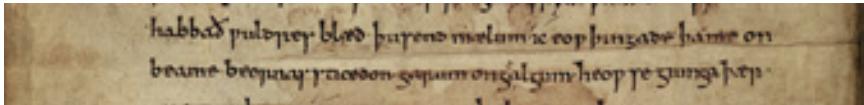 habbað ƿuldres blæd þusend mælum ic eoƿ þingade þa me on
beame beornas sticedon garum on galgum heoƿ se giunga þær·